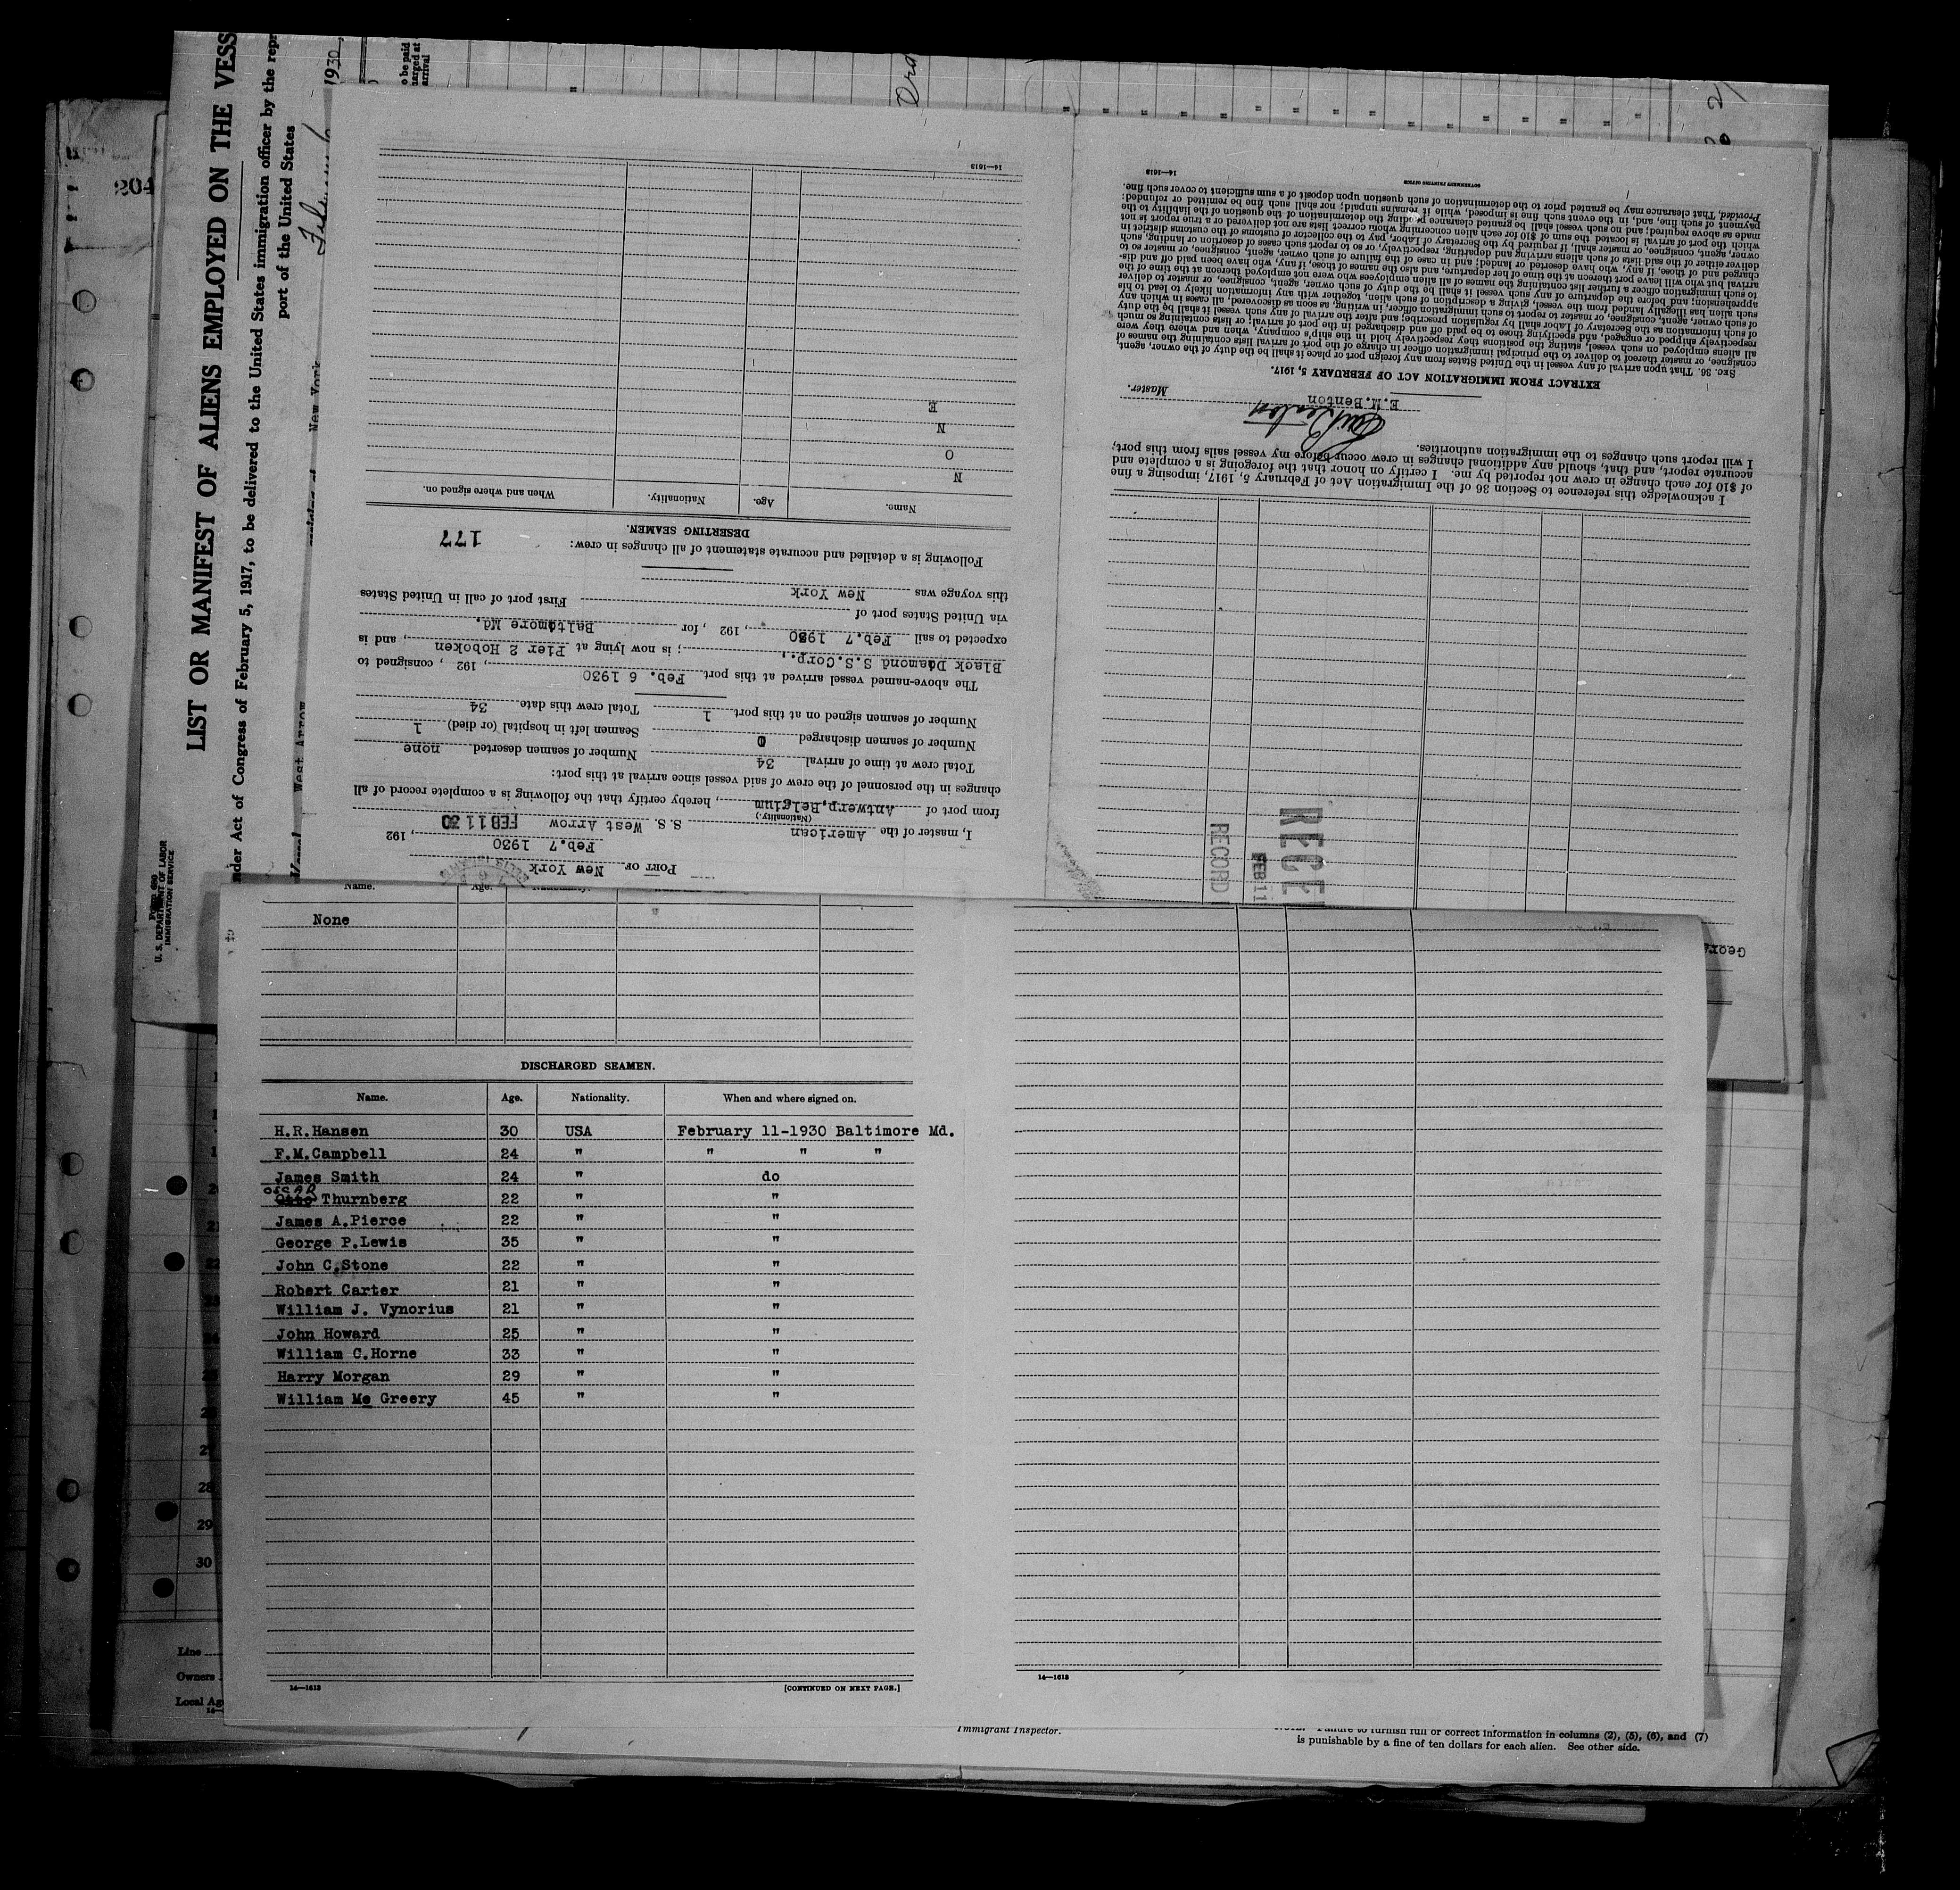 204
LIST OR MANIFEST OF ALIENS EMPLOYED ON THE VESS
nder Act of Congress of February 5, 1917, to be delivered to the United States immigration officer by the repr
port of the United States
1930,
New York
West Arrow
Form 680
U. S. DEPARTMENT OF LABOR
IMMIGRATION SERVICE
o be paid
harged at
arrival
PORT OF New York
Feb.7 1930, 192
I, master of the American S.S. West Arrow FEB 11 30
(Nationality.)
from port of Antwerp, Belgium, hereby certify that the following is a complete record of all
changes in the personnel of the crew of said vessel since arrival at this port:
Total crew at time of arrival 34 Number of seamen deserted none
Number of seamen discharged 0 Seamen left in hospital (or died) 1
Number of seamen signed on at this port 1 Total crew this date 34
The above-named vessel arrived at this port Feb. 6 1930, 192 , consigned to
Black Diamond S.S.Corp., ; is now lying at Pier 2 Hoboken, and is
expected to sail Feb.7 1930, 192 , for Baltimore Md.
via United States port of
this voyage was New York First port of call in United States
Following is a detailed and accurate statement of all changes in crew:
177
DESERTING SEAMEN.
Name. Age. Nationality. When and where signed on.
N
O
N
E
14—1613
RECORD
FEB 11
RECE
I acknowledge this reference to Section 36 of the Immigration Act of February 5, 1917, imposing a fine
of $10 for each change in crew not reported by me. I certify on honor that the foregoing is a complete and
accurate report, and that, should any additional changes in crew occur before my vessel sails from this port,
I will report such changes to the immigration authorities.
E.M.Benton
Master.
EXTRACT FROM IMMIGRATION ACT OF FEBRUARY 5, 1917.
SEC. 36. That upon arrival of any vessel in the United States from any foreign port or place it shall be the duty of the owner, agent,
consignee, or master thereof to deliver to the principal immigration officer in charge of the port of arrival lists containing the names of
all aliens employed on such vessel, stating the positions they respectively hold in the ship's company, when and where they were
respectively shipped or engaged, and specifying those to be paid off and discharged in the port of arrival; or lists containing so much
of such information as the Secretary of Labor shall by regulation prescribe; and after the arrival of any such vessel it shall be the duty
of such owner, agent, consignee, or master to report to such immigration officer, in writing, as soon as discovered, all cases in which any
such alien has illegally landed from the vessel, giving a description of such alien, together with any information likely to lead to his
apprehension; and before the departure of any such vessel it shall be the duty of such owner, agent, consignee, or master to deliver
to such immigration officer a further list containing the names of all alien employees who were not employed thereon at the time of the
arrival but who will leave port thereon at the time of her departure, and also the names of those, if any, who have been paid off and dis-
charged and of those, if any, who have deserted or landed; and in case of the failure of such owner, agent, consignee, or master so to
deliver either of the said lists of such aliens arriving and departing, respectively, or so to report such cases of desertion or landing, such
owner, agent, consignee, or master shall, if required by the Secretary of Labor, pay to the collector of customs of the customs district in
which the port of arrival is located the sum of $10 for each alien concerning whom correct lists are not delivered or a true report is not
made as above required; and no such vessel shall be granted clearance pending the determination of the question of the liability to the
payment of such fine, and, in the event such fine is imposed, while it remains unpaid; nor shall such fine be remitted or refunded:
Provided, That clearance may be granted prior to the determination of such question upon deposit of a sum sufficient to cover such fine.
GOVERNMENT PRINTING OFFICE
14—1613
Name. Age.
None
DISCHARGED SEAMEN.
Name. Age. Nationality. When and where signed on.
H.R.Hansen 30 USA February 11-1930 Baltimore Md.
F.M.Campbell 24 " " " "
James Smith 24 " do
OSCAR
Otto Thurnberg 22 " "
James A.Pierce 22 " "
George P.Lewis 35 " "
John C.Stone 22 " "
Robert Carter 21 " "
William J. Vynorius 21 " "
John Howard 25 " "
William C.Horne 33 " "
Harry Morgan 29 " "
William Mc Greery 45 " "
14—1613
[CONTINUED ON NEXT PAGE.]
14—1613
28
29
30
Line
Owners
Local Ag
Immigrant Inspector.
NOTE. Failure to furnish full or correct information in columns (2), (5), (6), and (7)
is punishable by a fine of ten dollars for each alien. See other side.